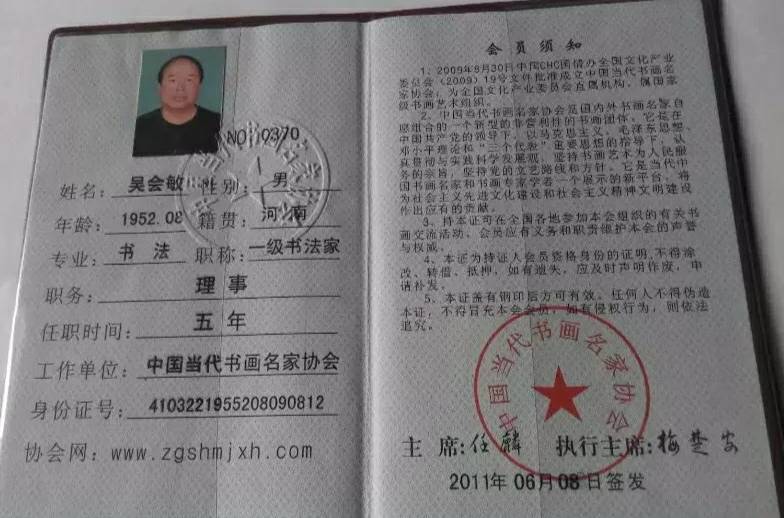 NO 0370
姓名: 吴会敏 性别: 男
年龄: 1952.08 籍贯: 河南
专业: 书法 职称: 一级书法家
职务: 理事
任职时间: 五年
工作单位: 中国当代书画名家协会
身份证号: 4103221955208090812
协会网: www.zgshmjxh.com
会员须知
1、2009年8月30日中国CHC国情办全国文化产业
委员会(2009)19号文件批准成立中国当代书画名
家协会,为全国文化产业委员会直属机构,属国家
级书画艺术组织。
2、中国当代书画名家协会是国内外书画名家自
愿组合的一个新型的非营利性的书画团体。它是在
中国共产党的领导下,以马克思主义、毛泽东思想、
邓小平理论和“三个代表”重要思想的指导下,认
真贯彻与实践科学发展观,坚持书画艺术为人民服
务的宗旨,坚持党的文艺路线和方针。它是当代中
国书画名家和书画专家学者一个展示的新平台,将
为社会主义先进文化建设和社会主义精神文明建设
作出应有的贡献。
3、持本证可在全国各地参加本会组织的有关书
画交流活动。会员应有义务和职责维护本会的声誉
与权威。
4、本证为持证人会员资格身份的证明,不得涂
改、转借、抵押,如有遗失,应及时声明作废,申
请补发。
5、本证盖有钢印后方可有效。任何人不得伪造
本证,不得冒充本会会员,如有侵权行为,则依法
追究。
中国当代书画名家协会
主席: 任麟 执行主席: 梅楚安
2011年06月08日签发